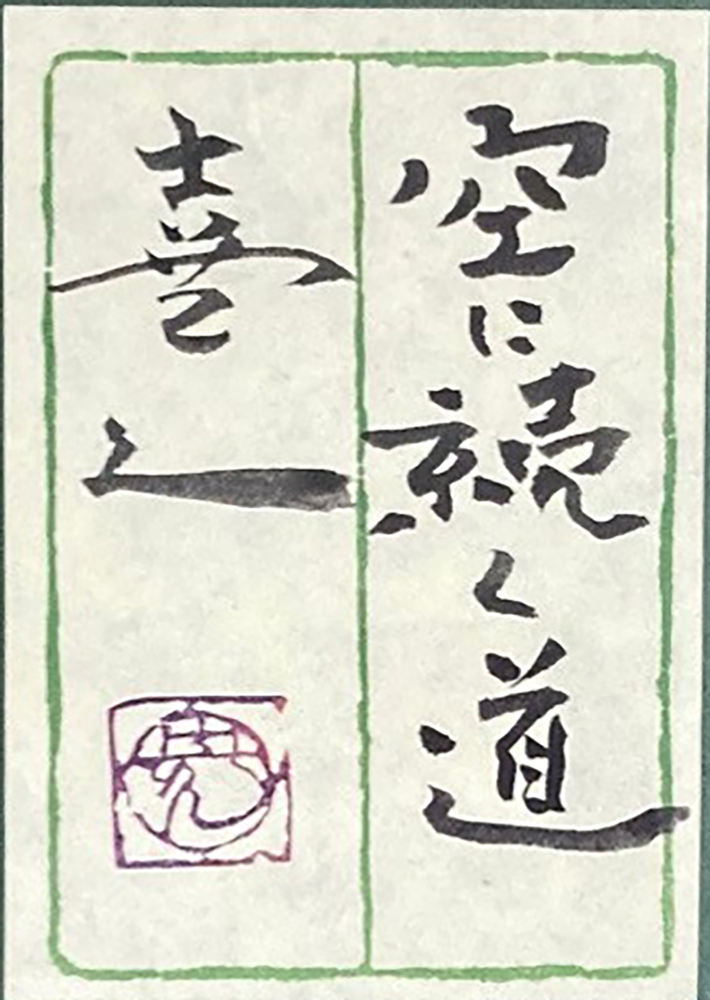 空に続く道
喜之